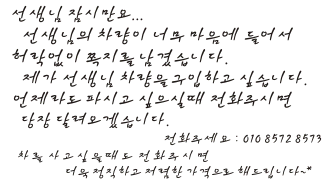 선생님 잠시만요...
선생님의 차량이 너무 마음에 들어서
허락없이 쪽지를 남겼습니다.
제가 선생님 차량을 구입하고 싶습니다.
언제라도 파시고 싶으실때 전화주시면
당장 달려오겠습니다.
전화주세요 : 010 8572 8573
차를 사고 싶을때도 전화주시면
더욱 정직하고 저렴한 가격으로 해드립니다~*